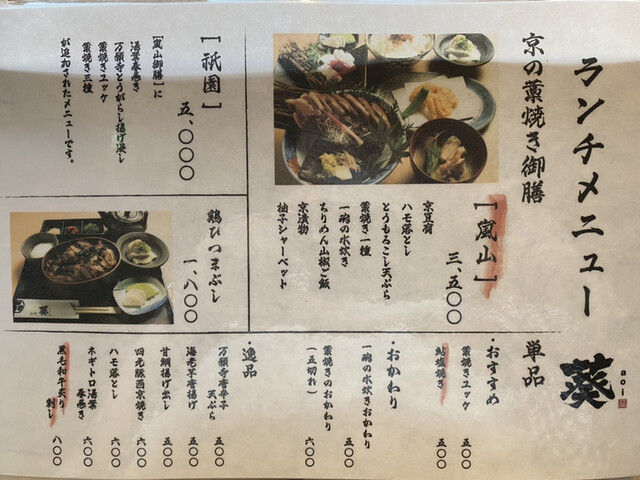 ランチメニュー
葵
aoi
京の藁焼き御膳
［嵐山］
三、五〇〇
京豆腐
ハモ落とし
とうもろこし天ぷら
藁焼き一種
一碗の水炊き
ちりめん山椒ご飯
京漬物
柚子シャーベット
［祇園］
五、〇〇〇
［嵐山御膳］に
湯葉春巻き
万願寺とうがらし揚げ浸し
藁焼きユッケ
藁焼き三種
が追加されたメニューです。
鶏ひつまぶし
一、八〇〇
単品
・おすすめ
藁焼きユッケ 五〇〇
鮎塩焼き 五〇〇
・おかわり
一碗の水炊きおかわり 五〇〇
藁焼きのおかわり
（五切れ） 六〇〇
・逸品
万願寺唐辛子
天ぷら 五〇〇
海老芋唐揚げ 五〇〇
甘鯛揚げ出し 五〇〇
四元豚西京焼き 六〇〇
ハモ落とし 六〇〇
ネギトロ湯葉
春巻き 六〇〇
黒毛和牛炙り
刺し 八〇〇